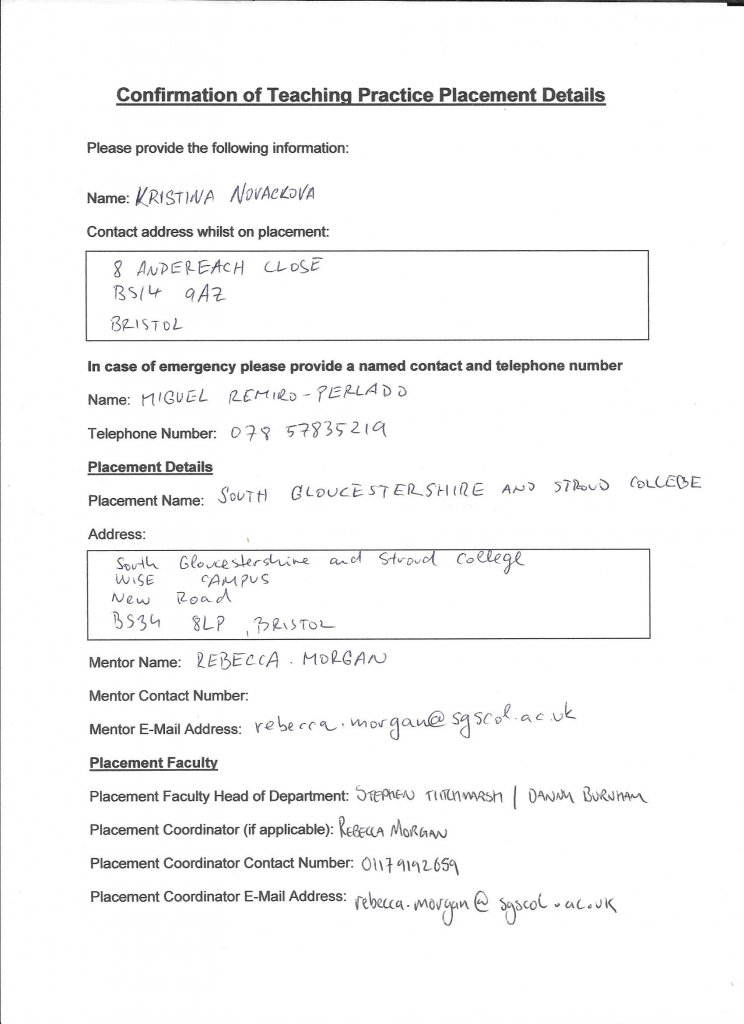 Confirmation of Teaching Practice Placement Details
Please provide the following information:
Name: KRISTINA NOVACKOVA
Contact address whilst on placement:
8 ANDEREACH CLOSE
BS14 9AZ
BRISTOL
In case of emergency please provide a named contact and telephone number
Name: MIGUEL REMIRO-PERLADO
Telephone Number: 078 57835219
Placement Details
Placement Name: SOUTH GLOUCESTERSHIRE AND STROUD COLLEGE
Address:
South Gloucestershire and Stroud College
WISE CAMPUS
New Road
BS34 8LP, BRISTOL
Mentor Name: REBECCA. MORGAN
Mentor Contact Number:
Mentor E-Mail Address: rebecca.morgan@sgscol.ac.uk
Placement Faculty
Placement Faculty Head of Department: STEPHEN TITCHMARSH | DANNY BURNHAM
Placement Coordinator (if applicable): REBECCA MORGAN
Placement Coordinator Contact Number: 01179192659
Placement Coordinator E-Mail Address: rebecca.morgan@sgscol.ac.uk